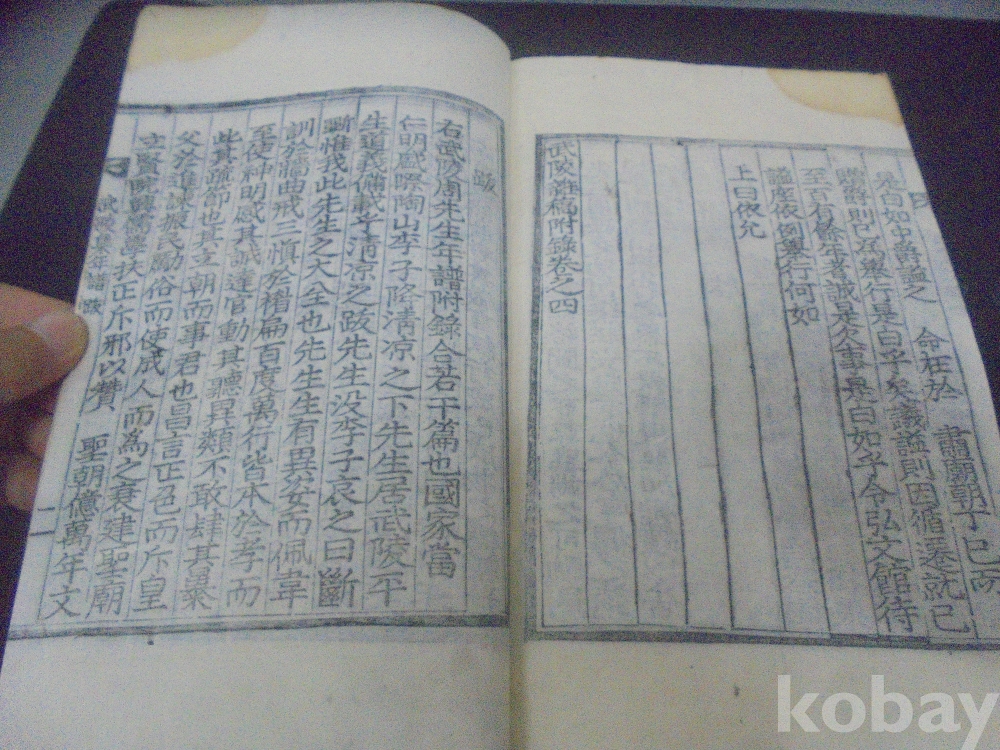 是白如中爵謚之 命在於 肅廟朝丁巳而
贈爵則已為舉行是白乎矣議謚則因循遷就已
至百有餘年者誠是欠事是白如乎今弘文館待
謚座依例舉行何如
上曰依允
武陵雜稿附錄卷之四
跋
右武陵周先生年譜附錄合若干篇也國家當
仁明盛際陶山李子降清凉之下先生居武陵平
生道義備載乎清凉之跋先生沒李子哀之曰斷
斷惟我此先生之大全也先生生有異姿而佩韋
訓於牖曲戒三愼於楣扁百度萬行皆本於孝而
至使神明感其誠達官動其聽異類不敢肆其暴
此其疏節也其立朝而事君也昌言正色而斥皇
父於進諫振民勵俗而使成人而為之衰建聖廟
立賢 扶正斥邪以贊 聖朝億萬年文
kobay